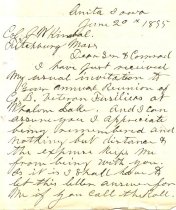 Anita Iowa
June 20th 1895
Col. J W Kimbal.
Fitchburg Mass
Dear Sir & Comrad
I have just received
my usual invitation to
your annual Reunion of
Veteran Fusiliers at
Whalom Lake. And I can
assure you I appreciate
being remembered and
nothing but distance &
the expense keeps me
from being with you.
As it is I shall have to
let this letter answer for
me as you Call the Roll.